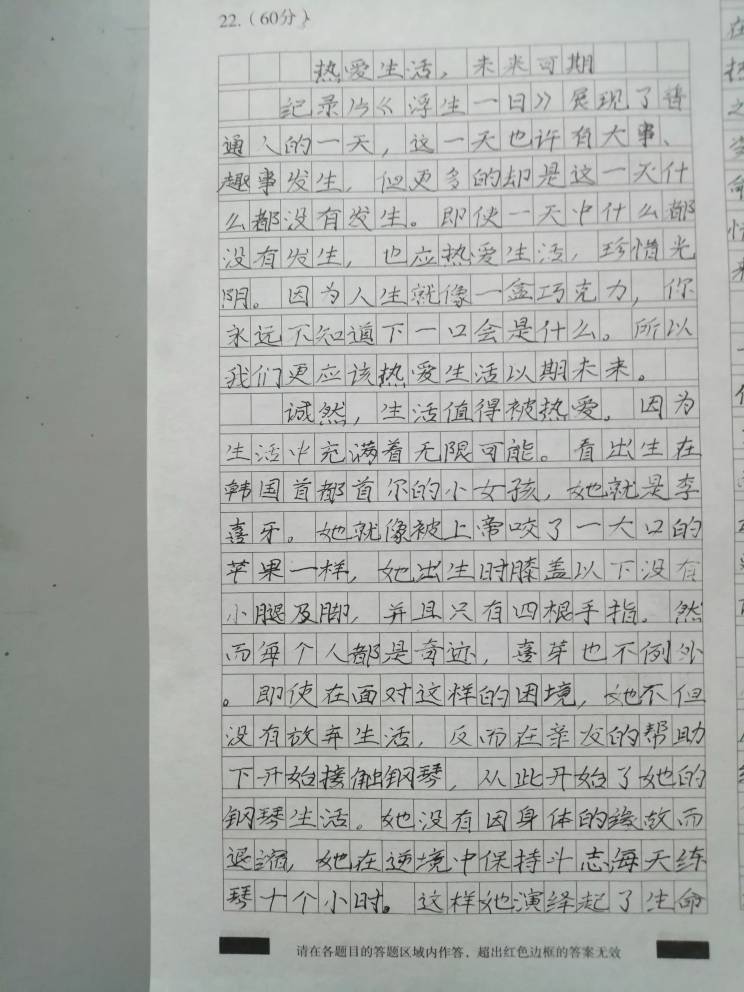 22.(60分)
热爱生活，未来可期
纪录片《浮生一日》展现了普
通人的一天，这一天也许有大事、
趣事发生，但更多的却是这一天什
么都没有发生。即使一天中什么都
没有发生，也应热爱生活，珍惜光
阴。因为人生就像一盒巧克力，你
永远不知道下一口会是什么。所以
我们更应该热爱生活以期未来。
诚然，生活值得被热爱。因为
生活中充满着无限可能。看出生在
韩国首都首尔的小女孩，她就是李
喜牙。她就像被上帝咬了一大口的
苹果一样，她出生时膝盖以下没有
小腿及脚，并且只有四根手指。然
而每个人都是奇迹，喜芽也不例外
。即使在面对这样的困境，她不但
没有放弃生活，反而在亲友的帮助
下开始接触钢琴，从此开始了她的
钢琴生活。她没有因身体的缘故而
退缩，她在逆境中保持斗志每天练
琴十个小时。这样她演绎起了生命
请在各题目的答题区域内作答，超出红色边框的答案无效